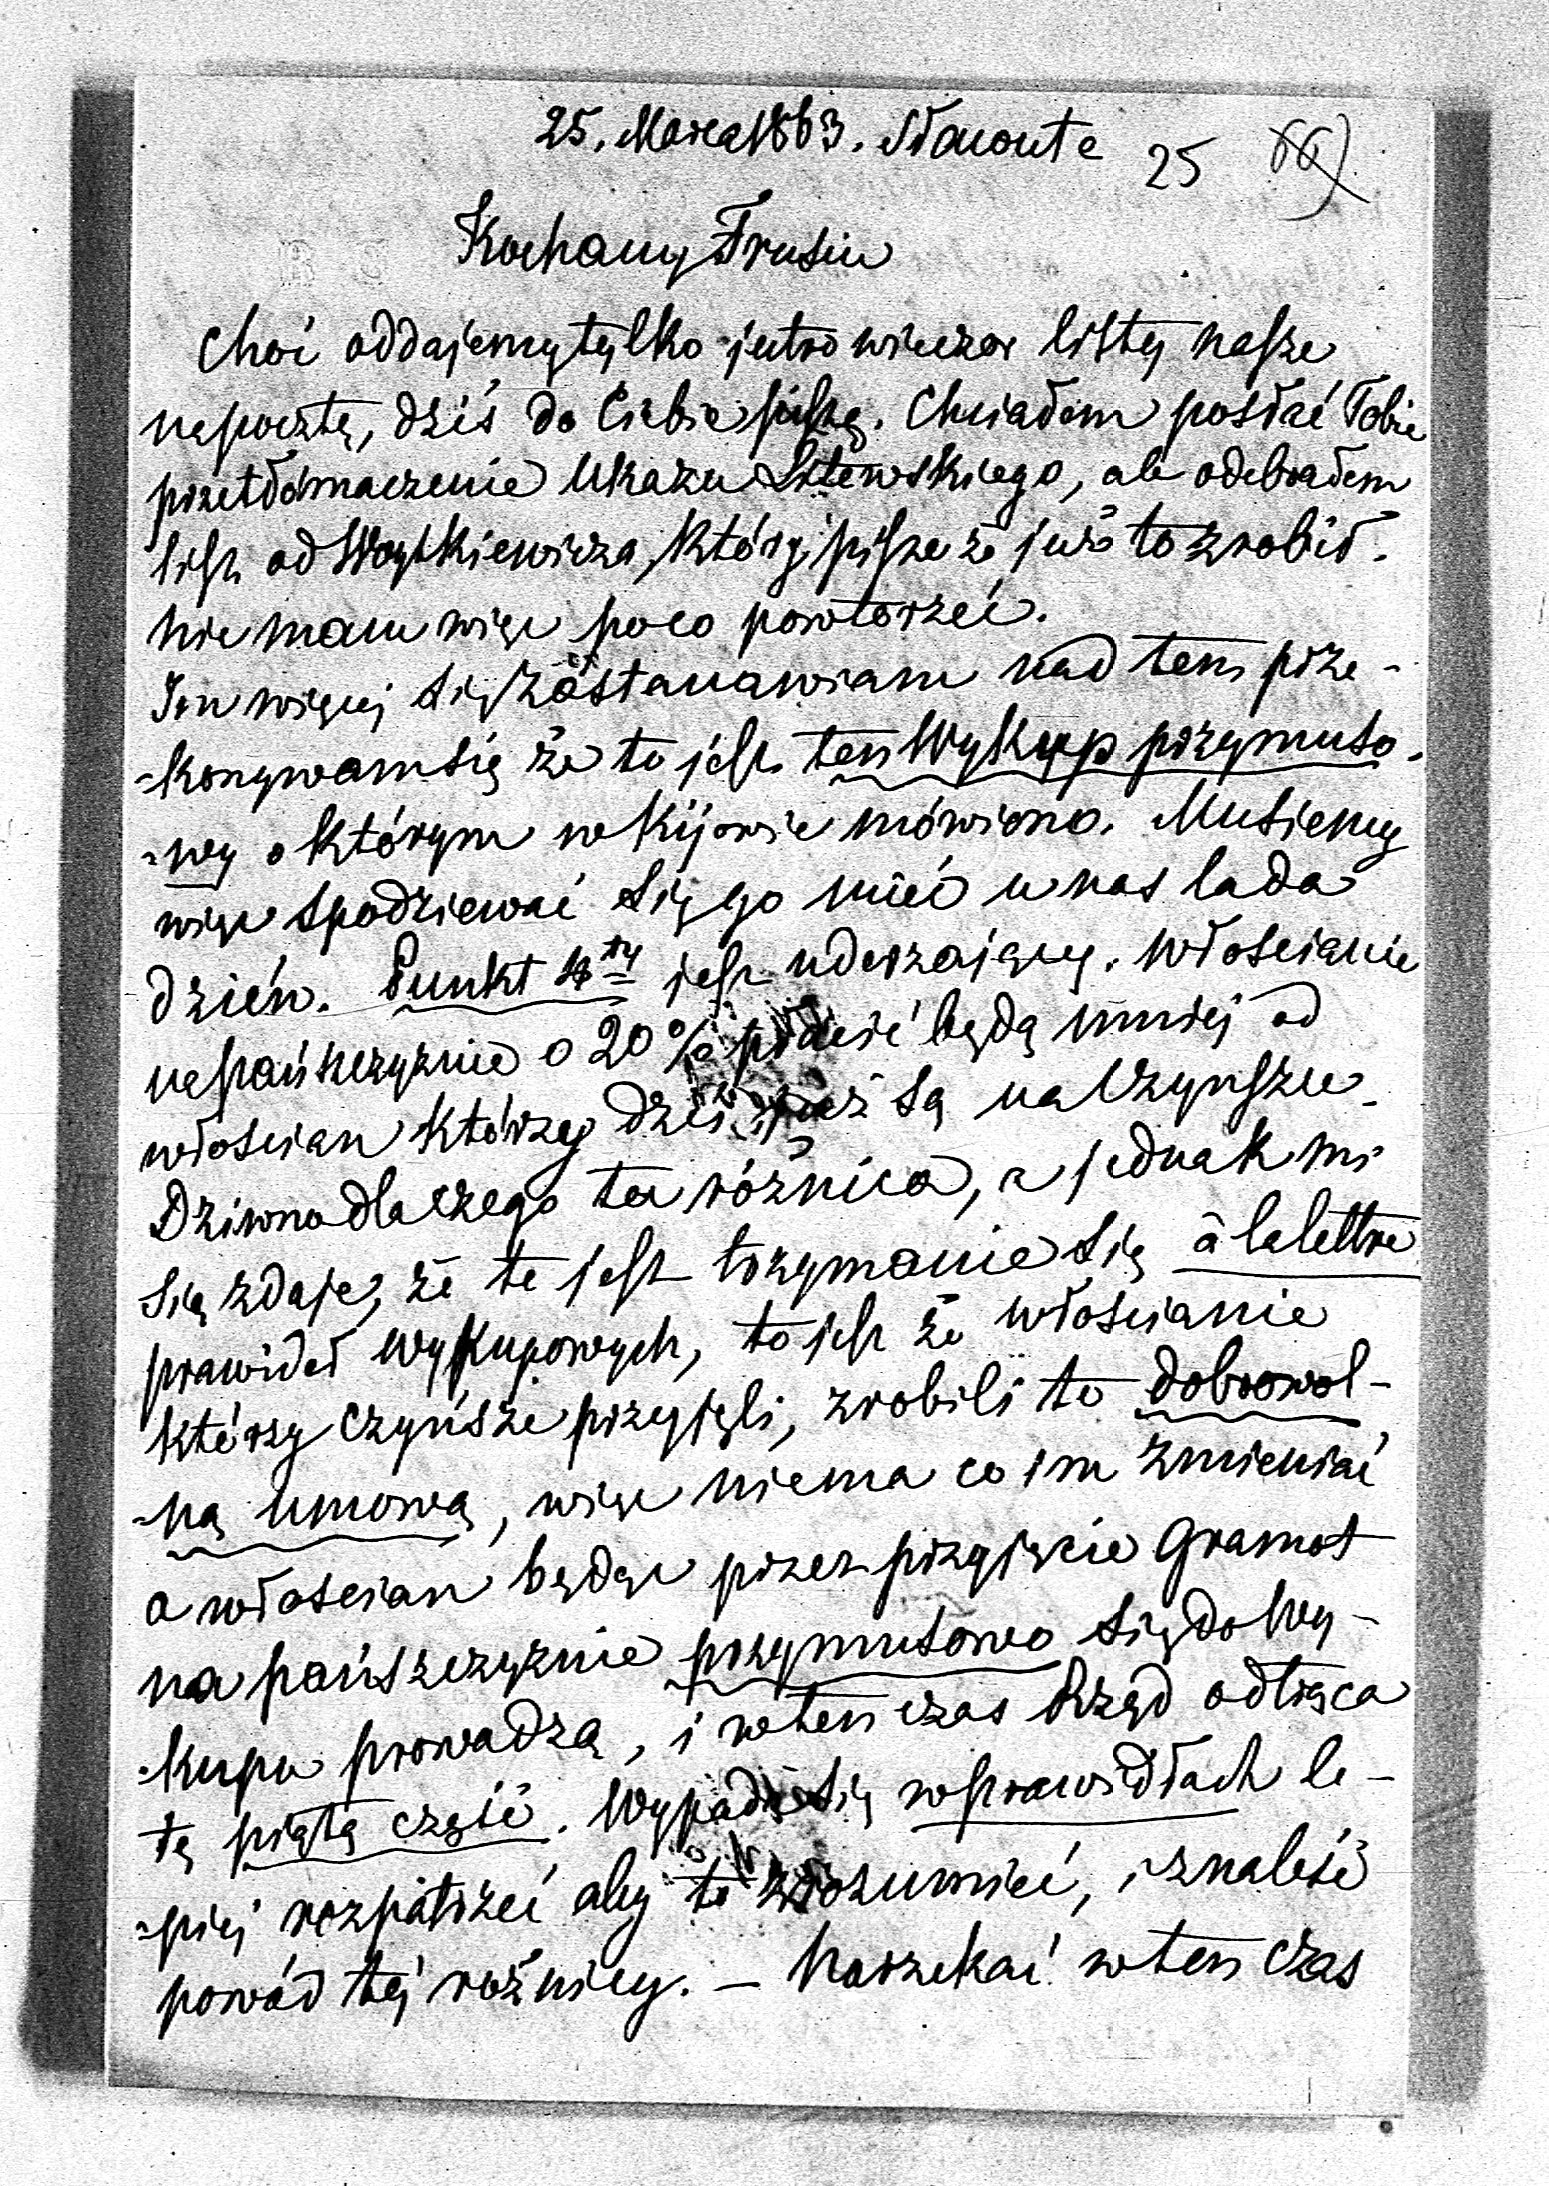 25. Marca 1863. Sławuta 25 66)
Kochany Frusiu
Choć oddajemy tylko jutro wieczor listy nasze
na pocztę, dziś do Ciebie piszę. Chciałem posłać Tobie
przetłómaczenie Ukazu Litewskiego, ale odebrałem
list od Woytkiewicza, który pisze że już to zrobił.
nie mam więc poco powtorzeć.
Im więcej się zastanawiam nad tem prze-
-konywam się że to jest ten Wykup przymuso-
-wy o którym w Kijowie mówiono. Musiemy
więc spodziewać się go mieć u nas lada
dzień. Punkt 4ty jest uderzający. Włościanie
na pańszczyznie o 20% płacić będą mniej od
włoscian którzy dziś już są na Czynszu.
Dziwno dla czego ta różnica, a jednak mi
się zdaje, że to jest trzymanie się à la lettre
prawideł wykupowych, to jest że włoscianie
którzy czynsze przyjęli, zrobili to dobrowol-
-ną umową, więc niema co im zmieniać
a włoscian będąc przez przyjęcie Gramot
na pańszczyznie przymusowo się do Wy-
-kupu prowadzą, i w ten czas Rząd odtrąca
tę piątą część. Wypada się w prawidłach le-
-piej rozpatrzeć aby to zrozumieć, i znaleść
powód téj rożnicy. – Narzekać w ten czas